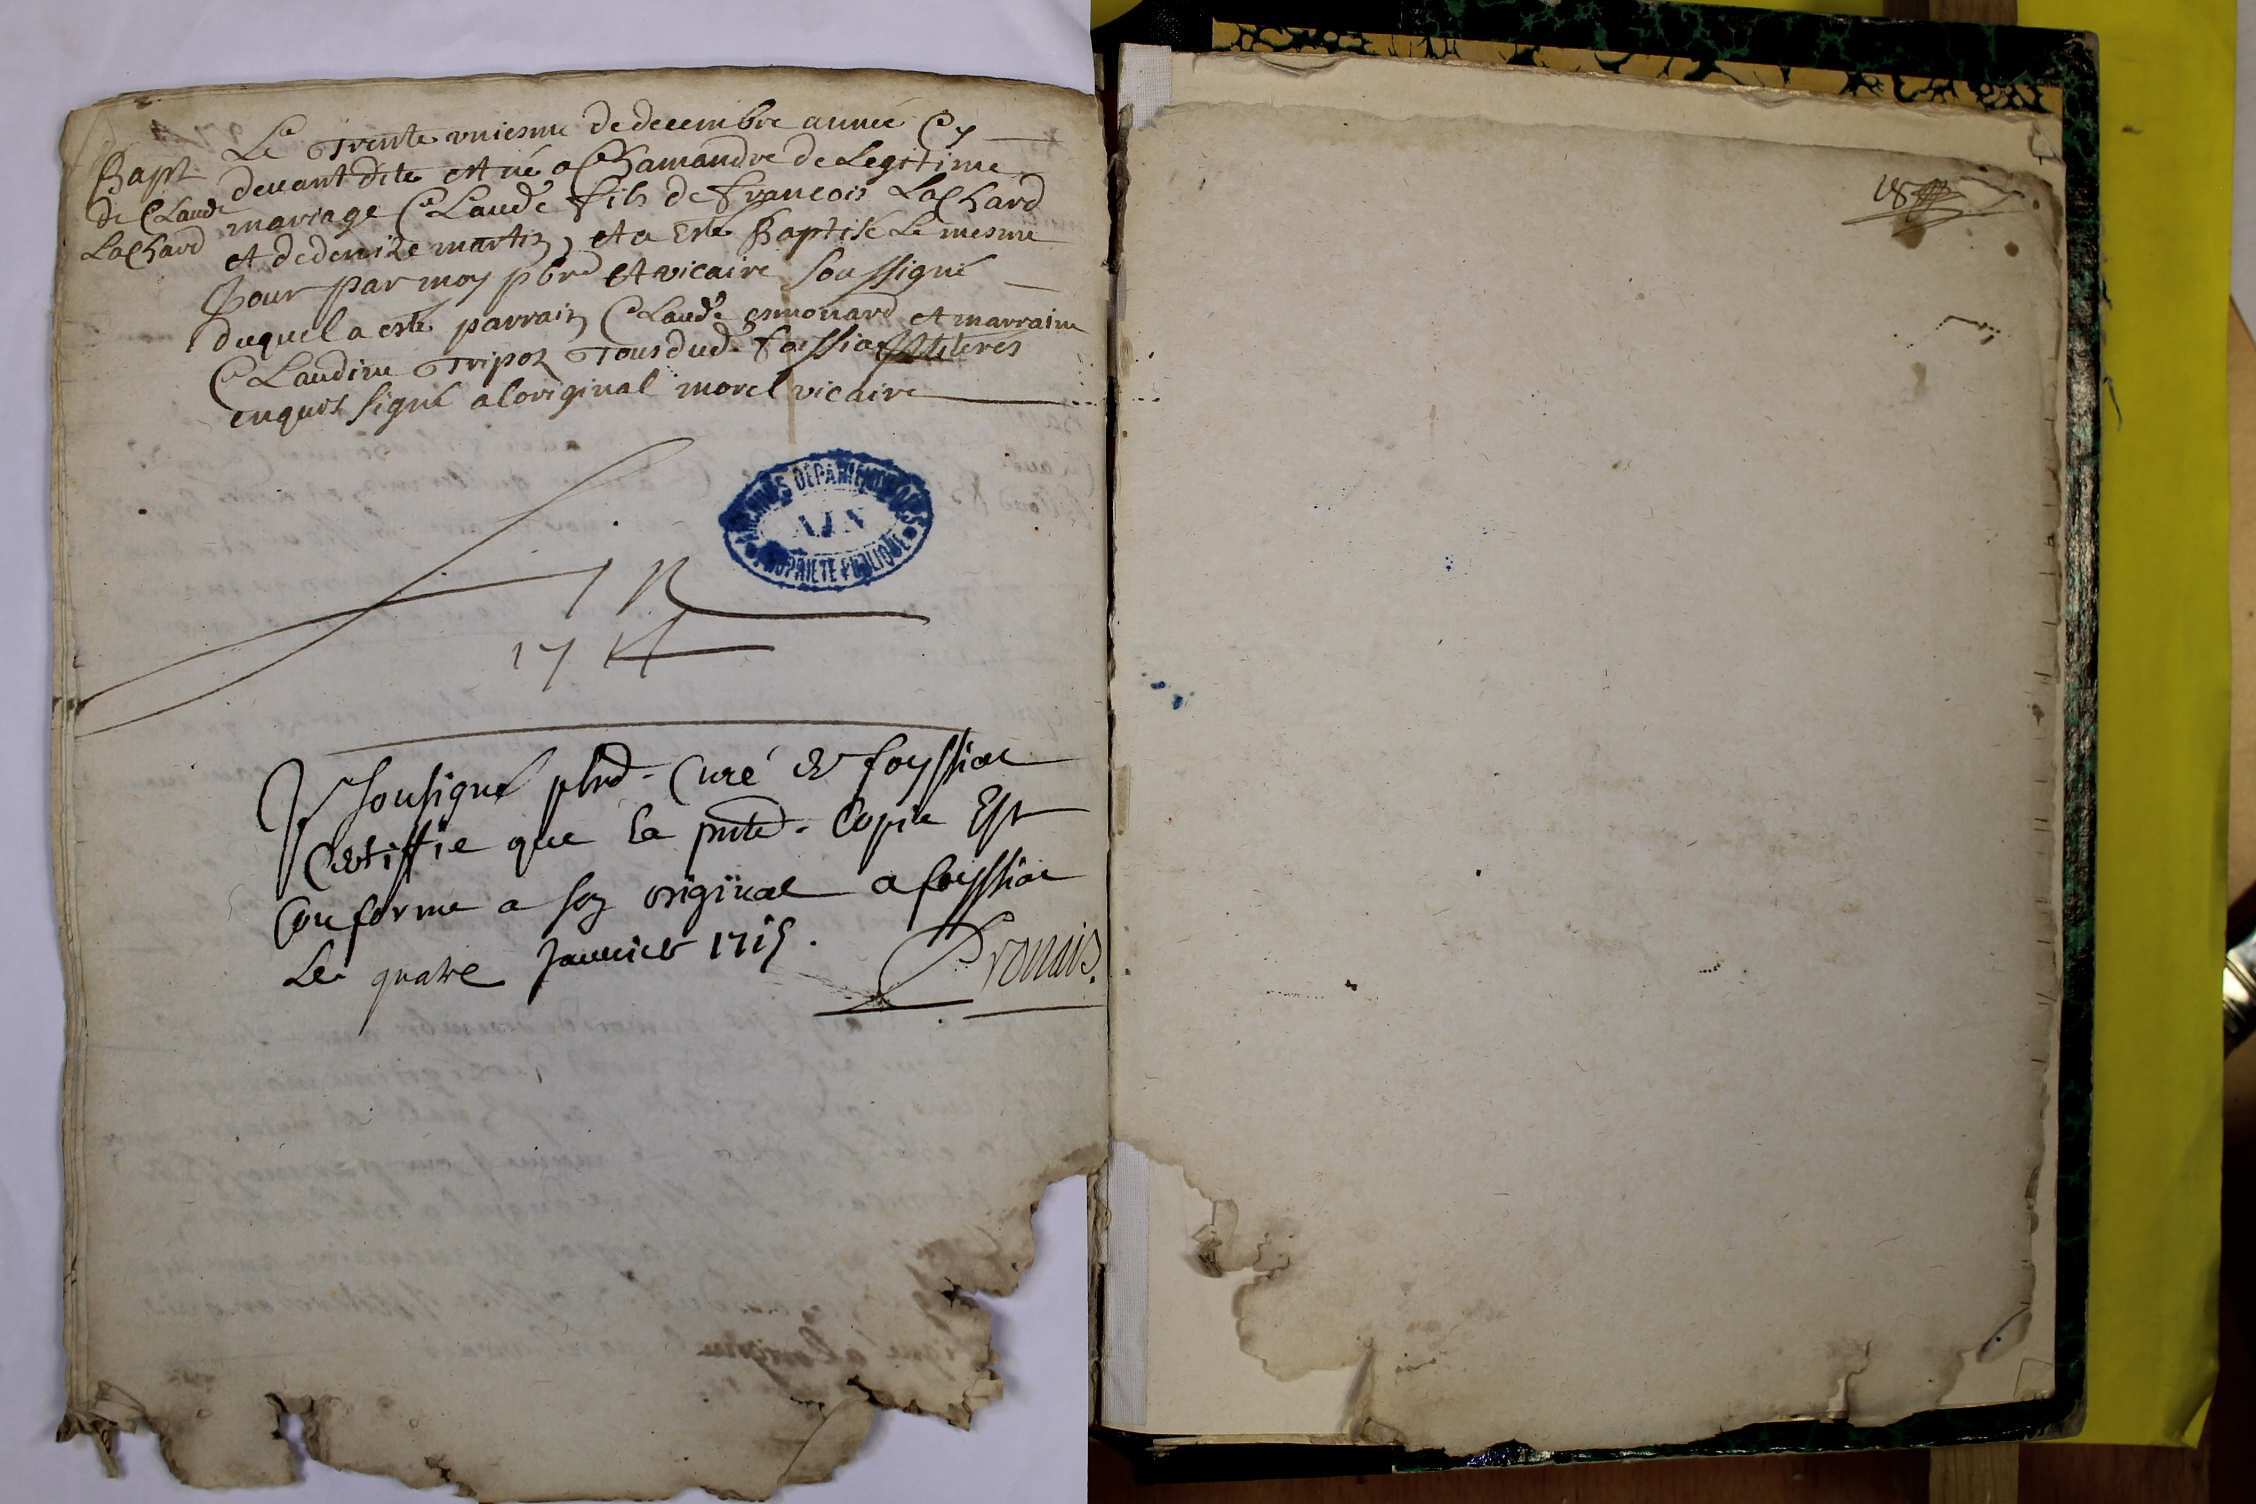 Bapt
de Claude
Lachard
Le Trente uniesme de decembre année Cy
devant dite est né a Chamandre de Legitime
mariage Claude fils de francois Lachard
et de denise martin, et a esté Baptisé Le mesme
Jour par moy pbre et vicaire soussigné
duquel a esté parrain Claude et marraine
Claudine Tripoz Tous dud. foissia Illiteres
enquis signé a loriginal morel vicaire
ARCHIVES DÉPARTEMENTALES
AIN
PROPRIÉTÉ PUBLIQUE
1714
Je sousigné pbre Curé de foyssiat
Certiffie que la pnte Copie Est
Conforme a son original a foyssiat
Le quatre Janvier 1715.
18